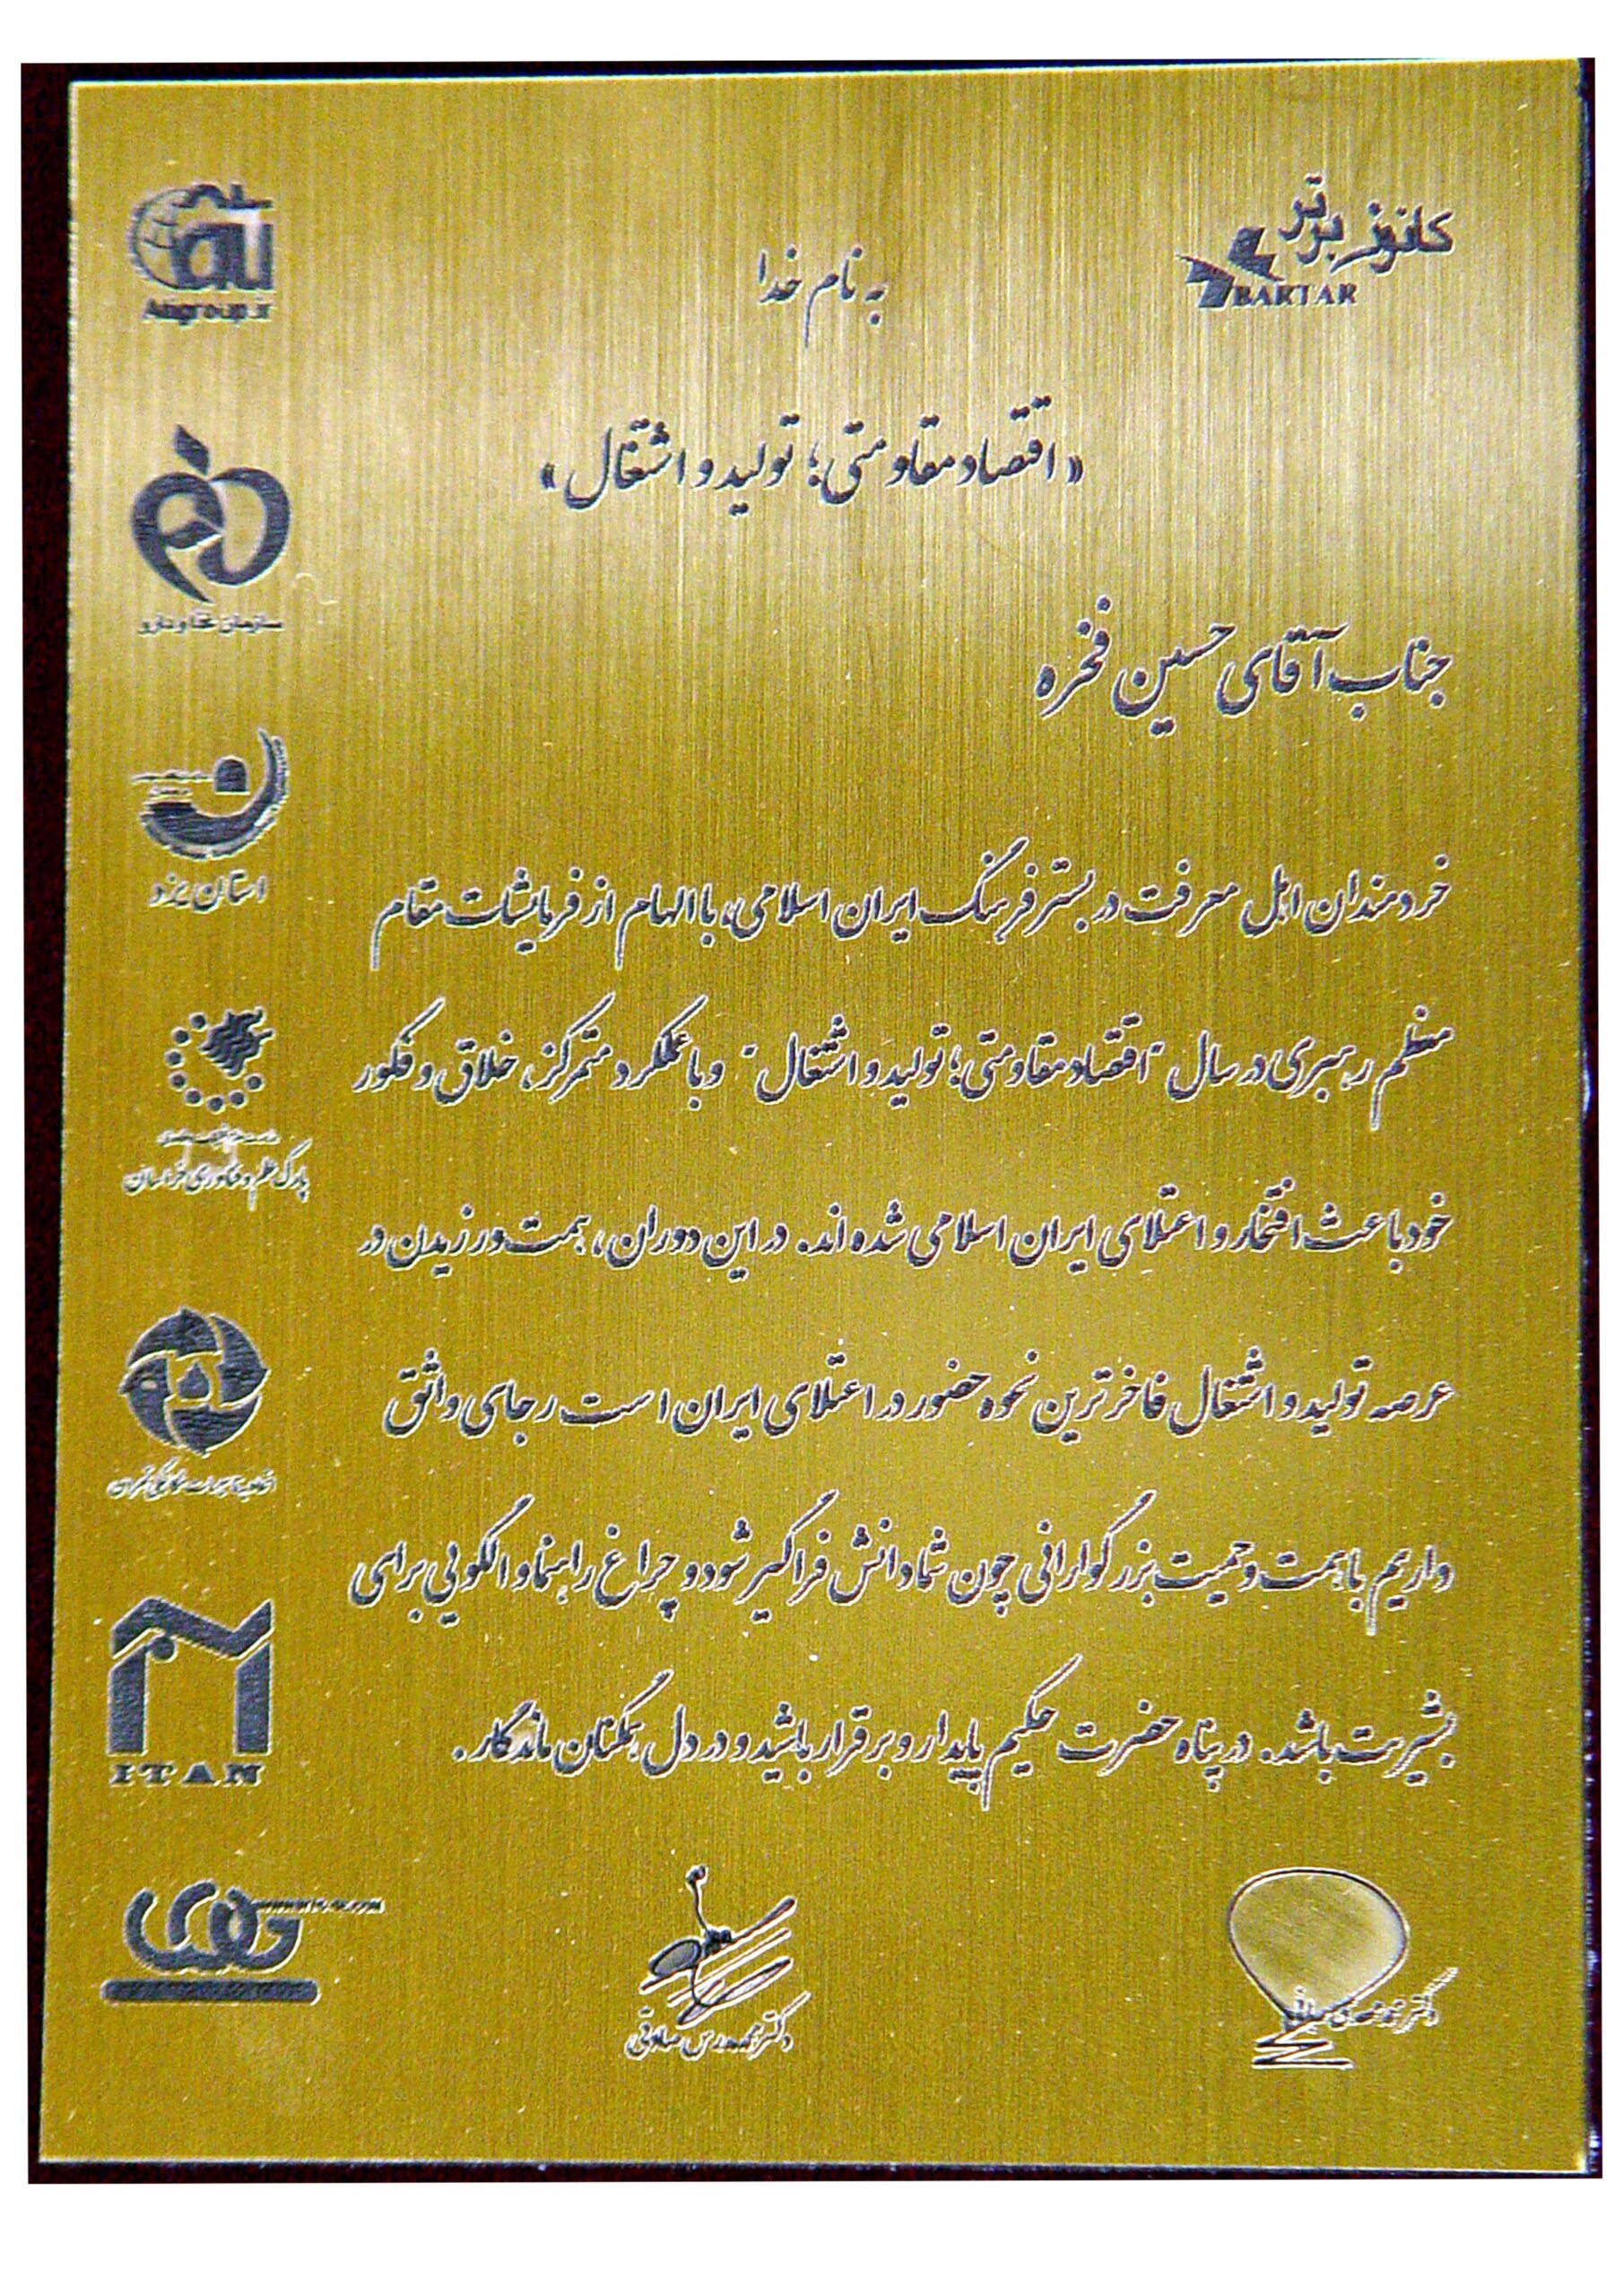 کانون برتر
BARTAR
به نام خدا
« اقتصاد مقاومتی؛ تولید و اشتغال »
جناب آقای حسین فخره
خردمندان اهل معرفت در بستر فرهنگ ایران اسلامی، با الهام از فرمایشات مقام
معظم رهبری در سال "اقتصاد مقاومتی؛ تولید و اشتغال" و با عملکرد متمرکز، خلاق و فکور
خود باعث افتخار و اعتلای ایران اسلامی شده اند. در این دوران، همت ورزیدن در
عرصه تولید و اشتغال فاخرترین نحوه حضور در اعتلای ایران است رجای واثق
داریم با همت و حمیت بزرگوارانی چون شما دانش فراگیر شود و چراغ راهنما و الگویی برای
بشریت باشد. در پناه حضرت حکیم پایدار و برقرار باشید و در دل همگنان ماندگار.
سازمان غذا و دارو
استان یزد
پارک علم و فناوری خراسان
ITAN
دکتر
دکتر